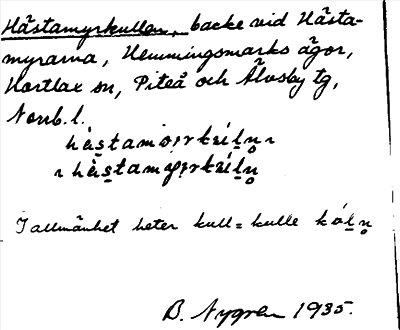 Hästamyrkullen, backe vid Hästa-
myrarna, Hemmingsmarks ägor,
Hortlax sn, Piteå och Älvsby tg,
Norrb. l.
I allmänhet heter kull = kulle
B. Nygren 1935.